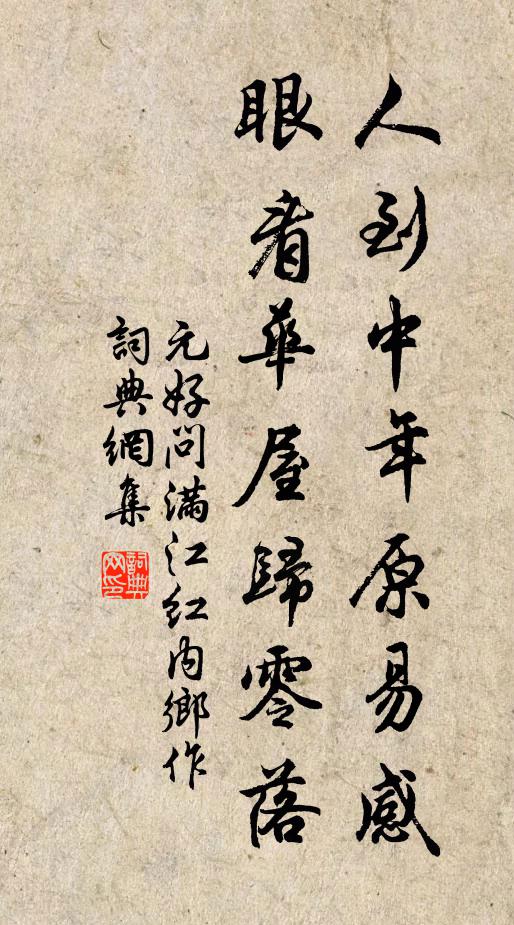 人到中年原易感
眼看華屋歸零落
元好问滿江红内鄉作
詞典網集
詞典网印